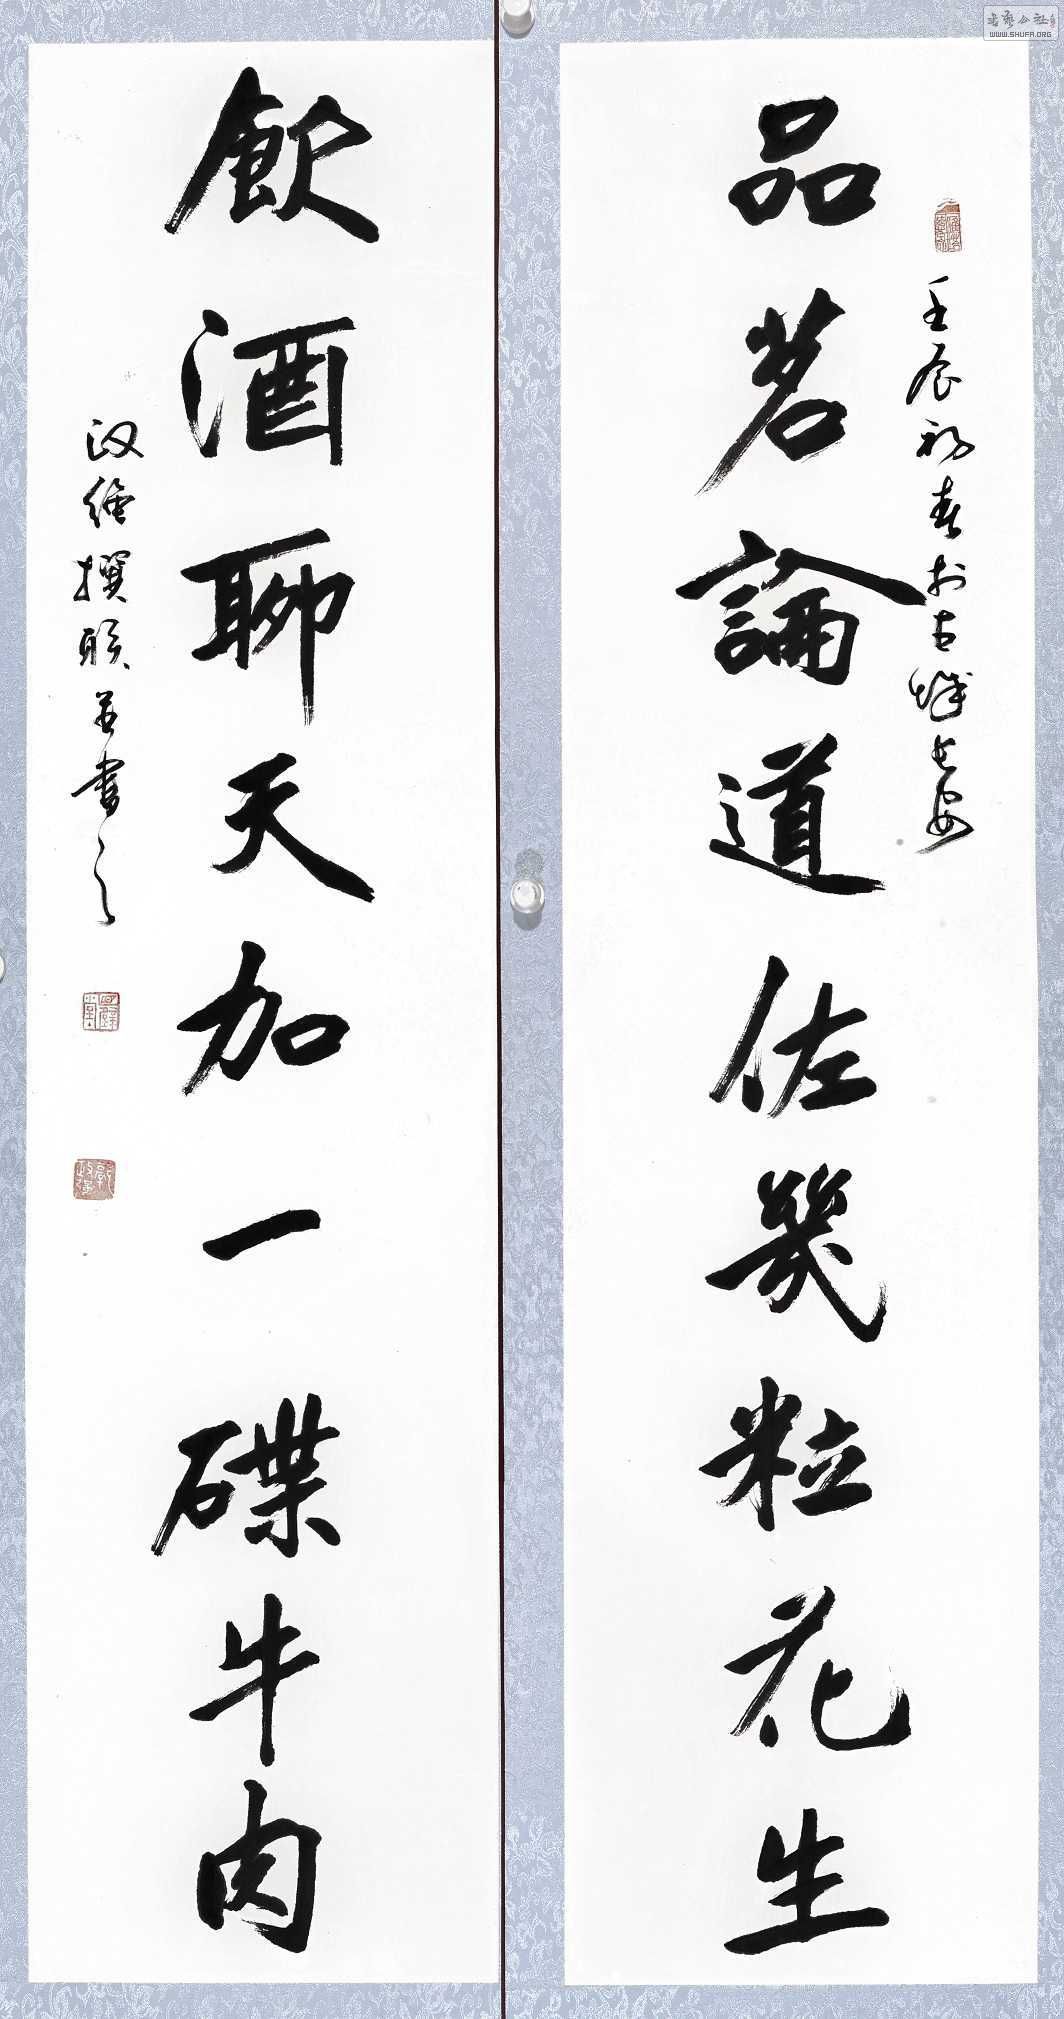 品茗論道佐幾粒花生
壬辰初春於古城長安
飲酒聊天加一碟牛肉
政絳撰联並書之
書藝公社
WWW.SHUFA.ORG